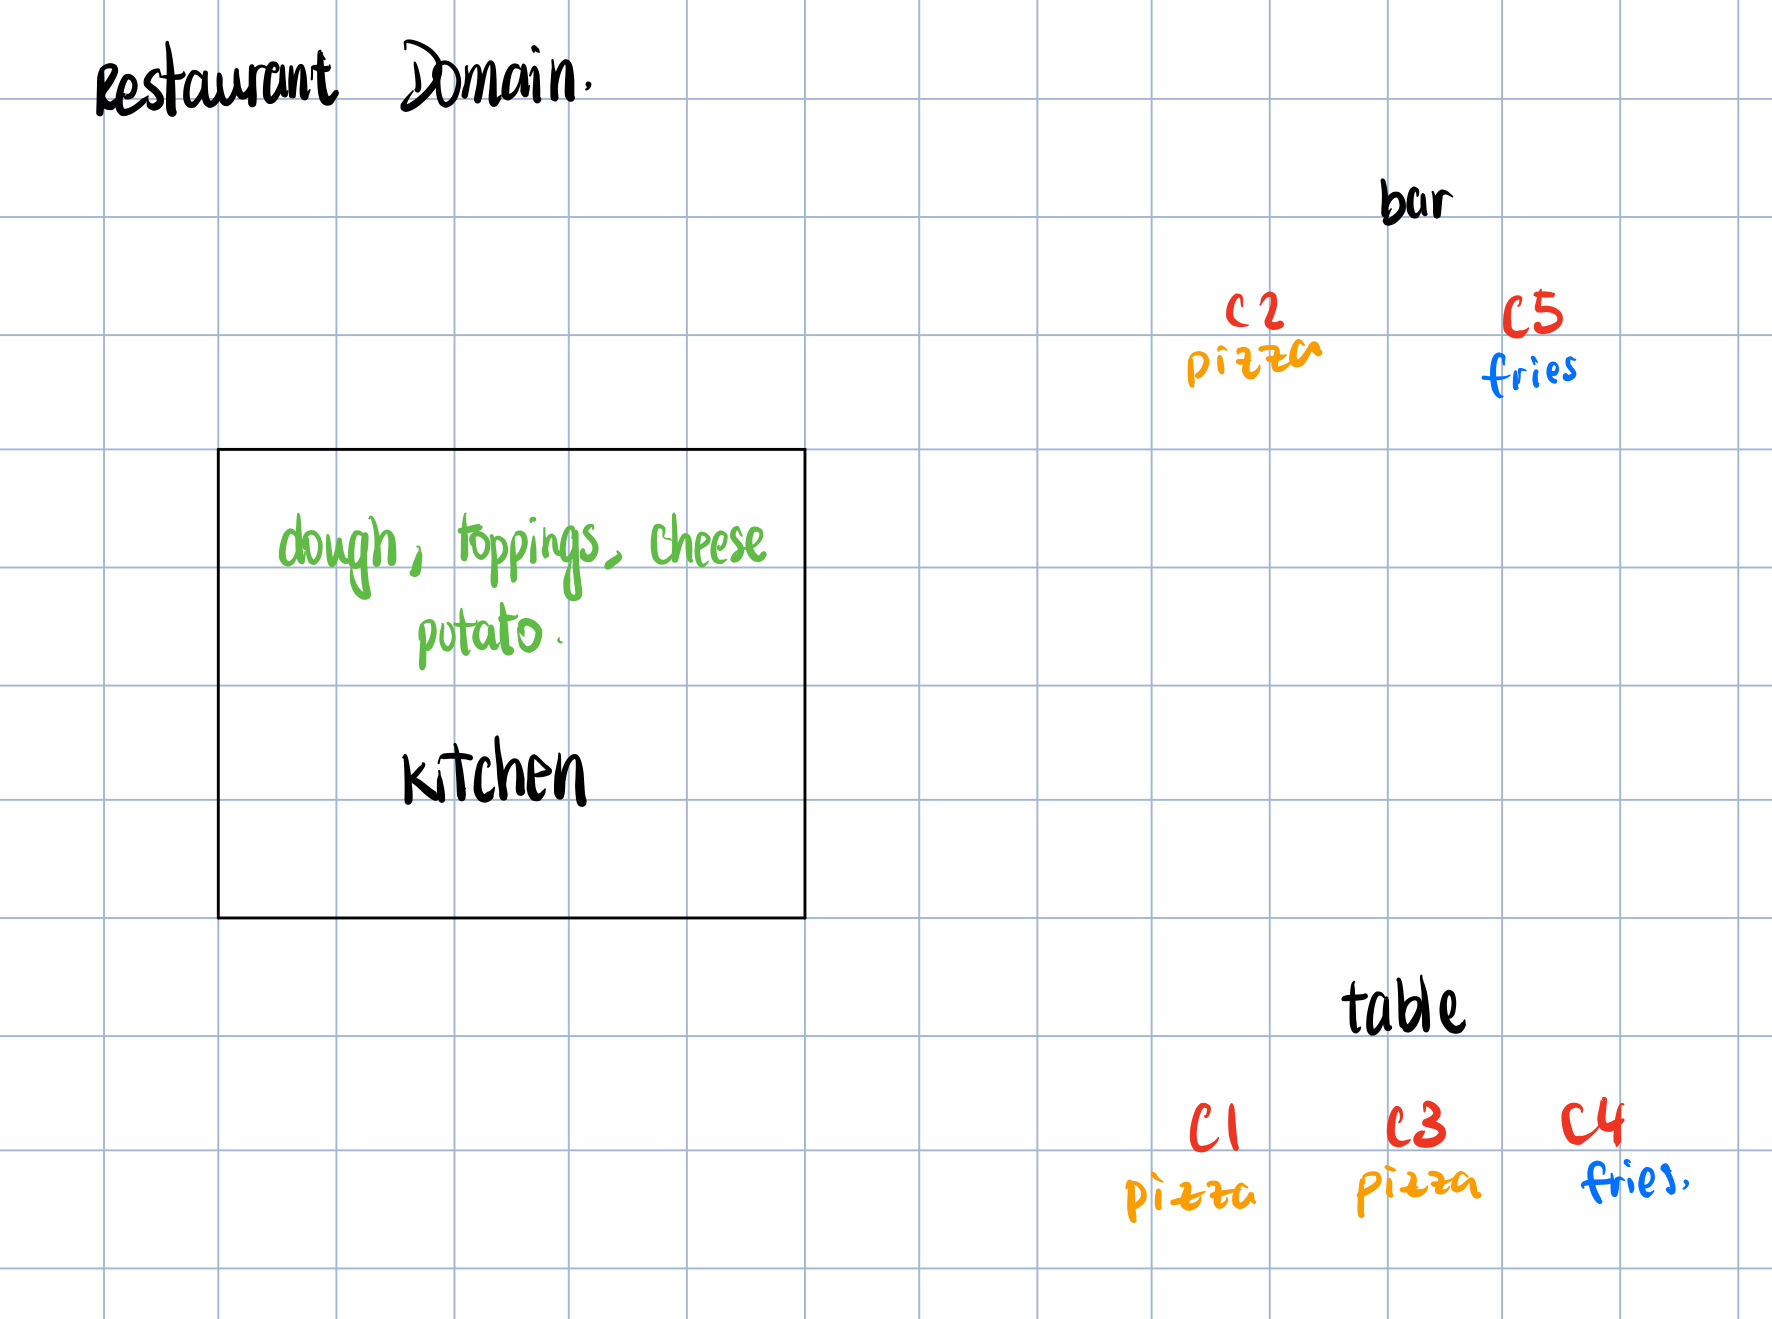 Restaurant Domain.
bar
C2 C5
pizza fries
dough, toppings, cheese
potato.
kitchen
table
C1 C3 C4
pizza pizza fries.